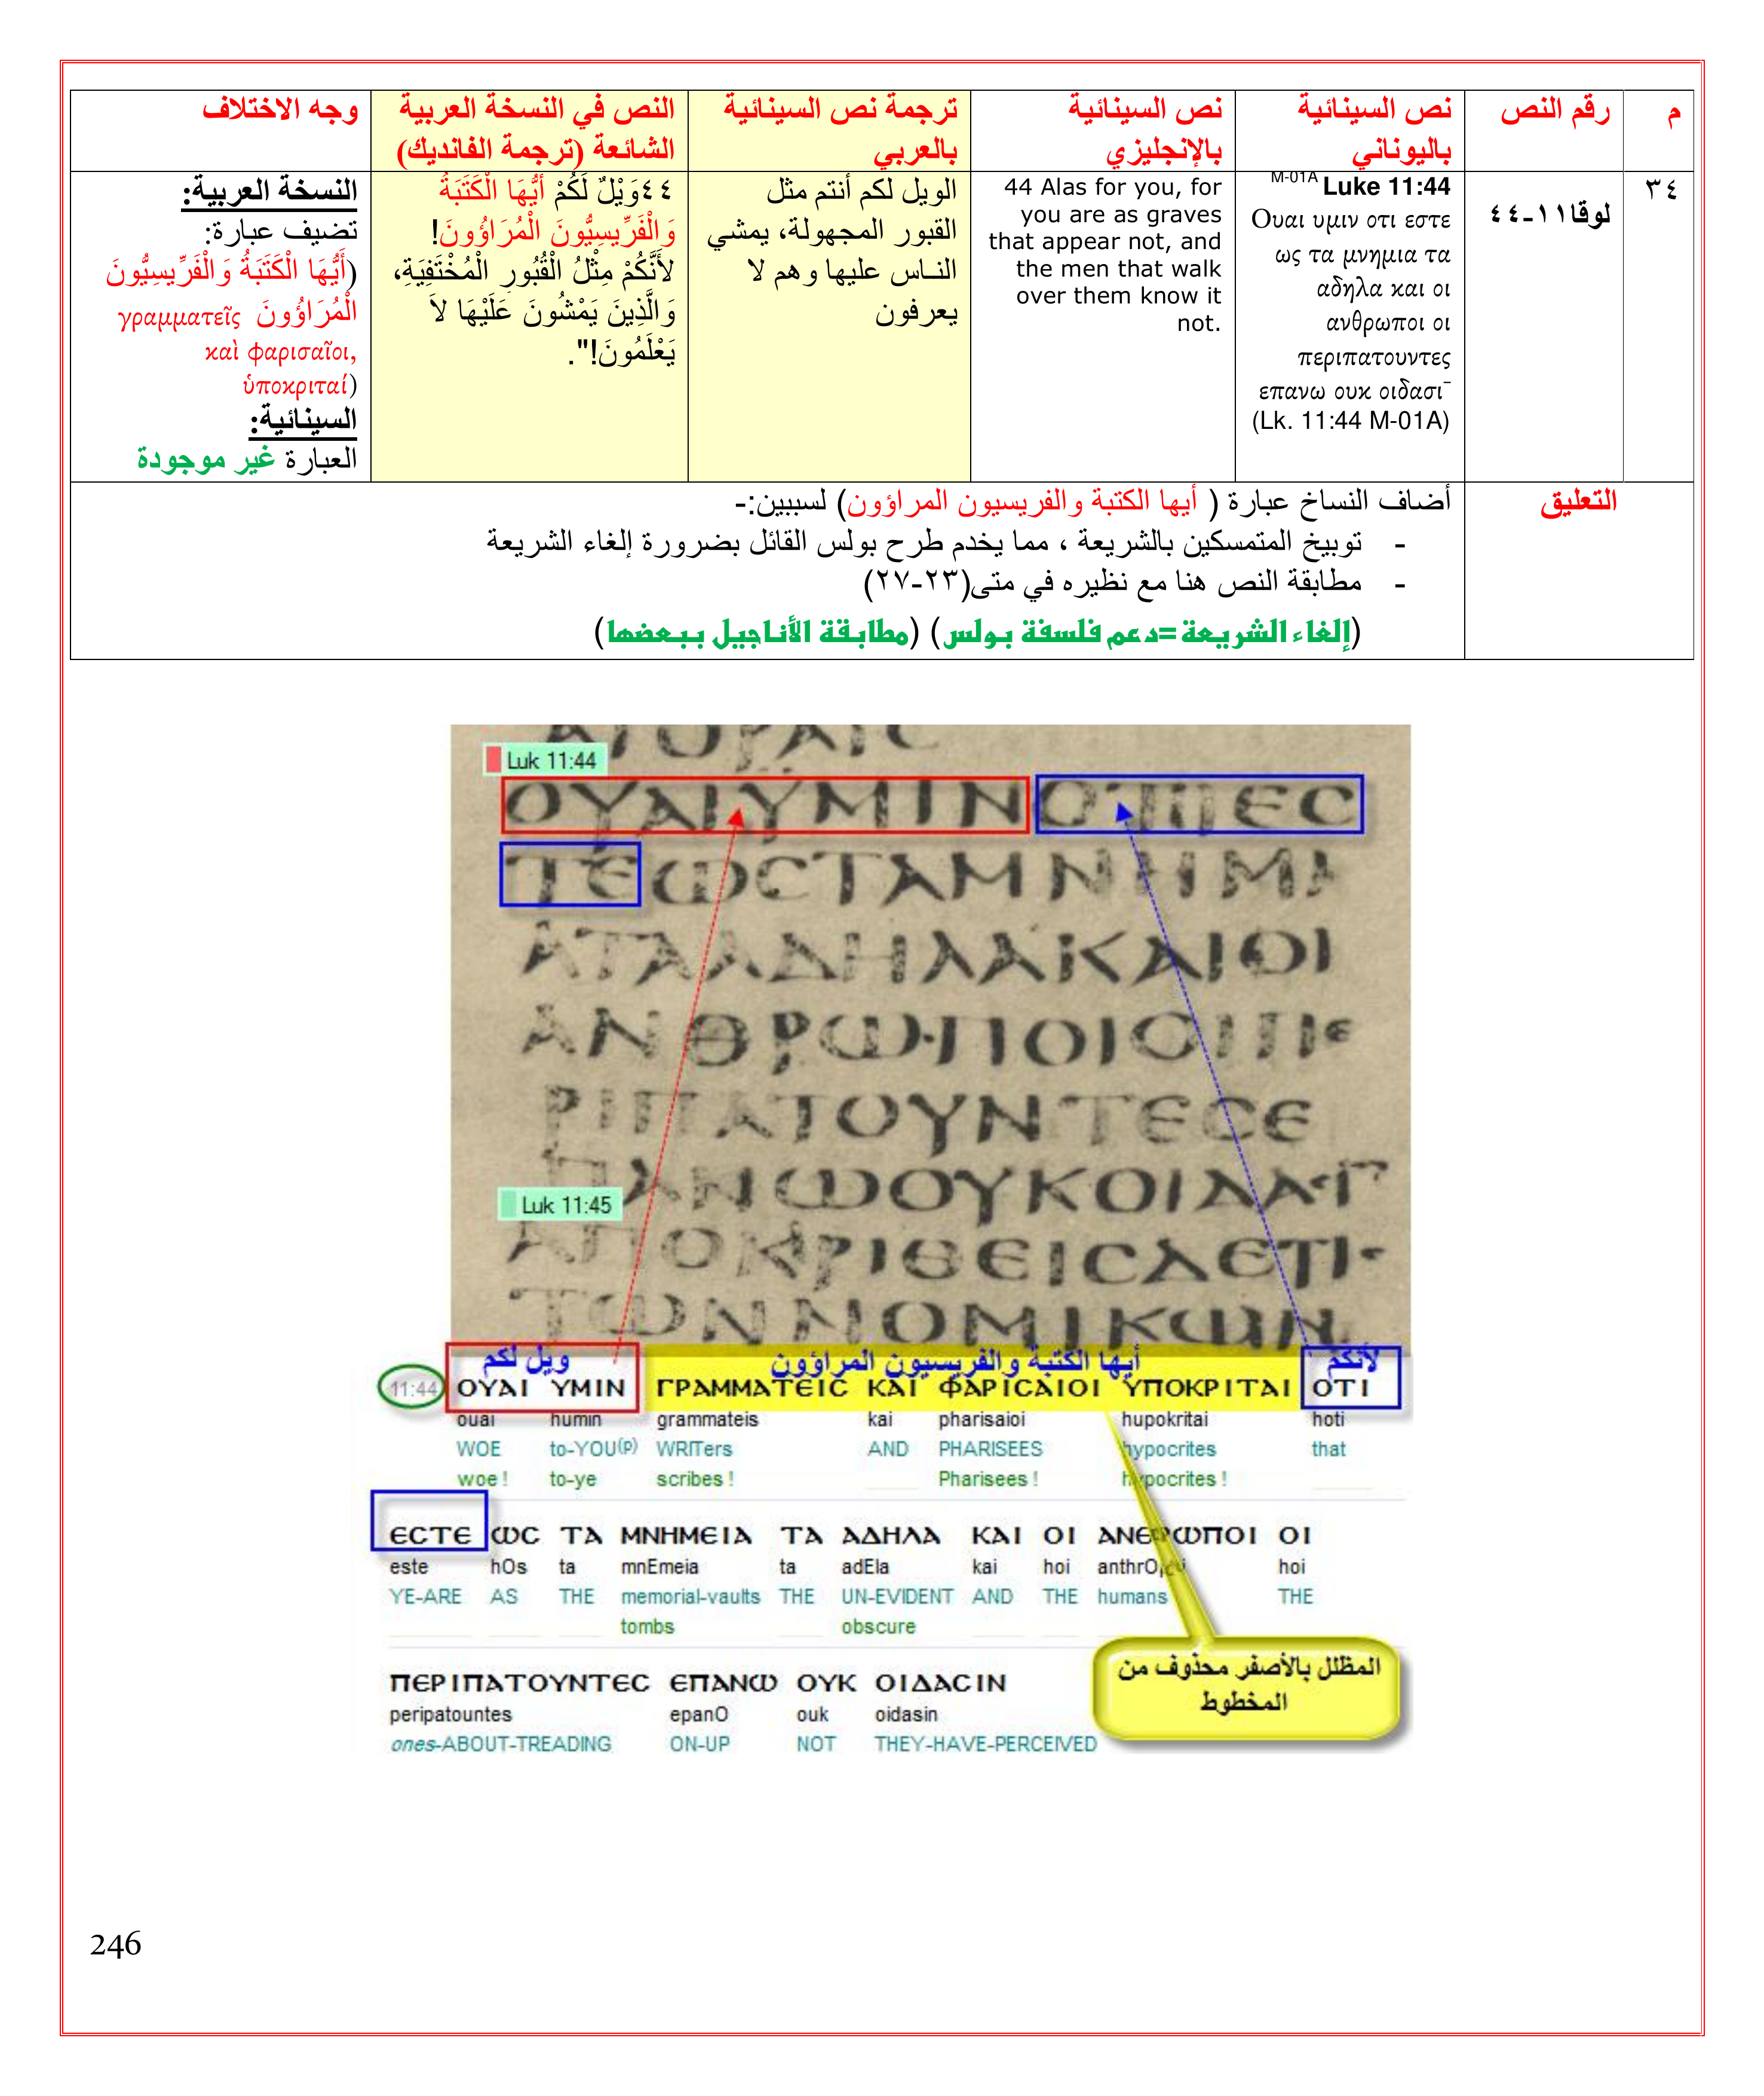 م
رقم النص
نص السينائية
باليوناني
نص السينائية
بالإنجليزي
ترجمة نص السينائية
بالعربي
النص في النسخة العربية
الشائعة (ترجمة الفانديك)
وجه الاختلاف
٣٤
لوقا١١-٤٤
M-01A Luke 11:44
Ουαι υμιν οτι εστε
ως τα μνημια τα
αδηλα και οι
ανθρωποι οι
περιπατουντες
επανω ουκ οιδασι¯
(Lk. 11:44 M-01A)
44 Alas for you, for
you are as graves
that appear not, and
the men that walk
over them know it
not.
الويل لكم أنتم مثل
القبور المجهولة، يمشي
النـاس عليها وهم لا
يعرفون
٤٤وَيْلٌ لَكُمْ أَيُّهَا الْكَتَبَةُ
وَالْفَرِّيسِيُّونَ الْمُرَاؤُونَ!
لأَنَّكُمْ مِثْلُ الْقُبُورِ الْمُخْتَفِيَةِ،
وَالَّذِينَ يَمْشُونَ عَلَيْهَا لاَ
يَعْلَمُونَ!".
النسخة العربية:
تضيف عبارة:
(أَيُّهَا الْكَتَبَةُ وَالْفَرِّيسِيُّونَ
الْمُرَاؤُونَ γραμματεῖς
καὶ φαρισαῖοι,
ὑποκριταί)
السينائية:
العبارة غير موجودة
التعليق
أضاف النساخ عبارة ( أيها الكتبة والفريسيون المراؤون) لسببين:-
- توبيخ المتمسكين بالشريعة ، مما يخدم طرح بولس القائل بضرورة إلغاء الشريعة
- مطابقة النص هنا مع نظيره في متى(٢٣-٢٧)
(إلغاء الشريعة=دعم فلسفة بولس) (مطابقة الأناجيل ببعضها)
Luk 11:44
ΟΥΑΙΥΜΙΝΟΤΙΕC
ΤΕωCΤΑΜΝΗΜΙ
ΑΤΑΑΔΗΛΑΚΑΙΟΙ
ΑΝΘΡω·ΠΟΙΟΙΠΕ
ΡΙΠΑΤΟΥΝΤΕCΕ
ΠΑΝωΟΥΚΟΙΔΑ
Luk 11:45
ΑΠΟΚΡΙΘΕΙCΔΕΤΙ
ΤωΝΝΟΜΙΚωΝ
ويل لكم أيها الكتبة والفريسيون المراؤون لأنكم
11:44 ΟΥΑΙ ΥΜΙΝ ΓΡΑΜΜΑΤΕΙC ΚΑΙ ΦΑΡΙCΑΙΟΙ ΥΠΟΚΡΙΤΑΙ ΟΤΙ
ouai humin grammateis kai pharisaioi hupokritai hoti
WOE to-YOU(p) WRITers AND PHARISEES hypocrites that
woe ! to-ye scribes ! Pharisees ! hypocrites !
ΕCΤΕ ωC ΤΑ ΜΝΗΜΕΙΑ ΤΑ ΑΔΗΛΑ ΚΑΙ ΟΙ ΑΝΘΡωΠΟΙ ΟΙ
este hOs ta mnEmeia ta adEla kai hoi hoi
YE-ARE AS THE memorial-vaults THE UN-EVIDENT AND THE humans THE
tombs obscure
ΠΕΡΙΠΑΤΟΥΝΤΕC ΕΠΑΝω ΟΥΚ ΟΙΔΑCΙΝ
peripatountes epanO ouk oidasin
ones-ABOUT-TREADING ON-UP NOT THEY-HAVE-PERCEIVED
المظلل بالأصفر محذوف من
المخطوط
246